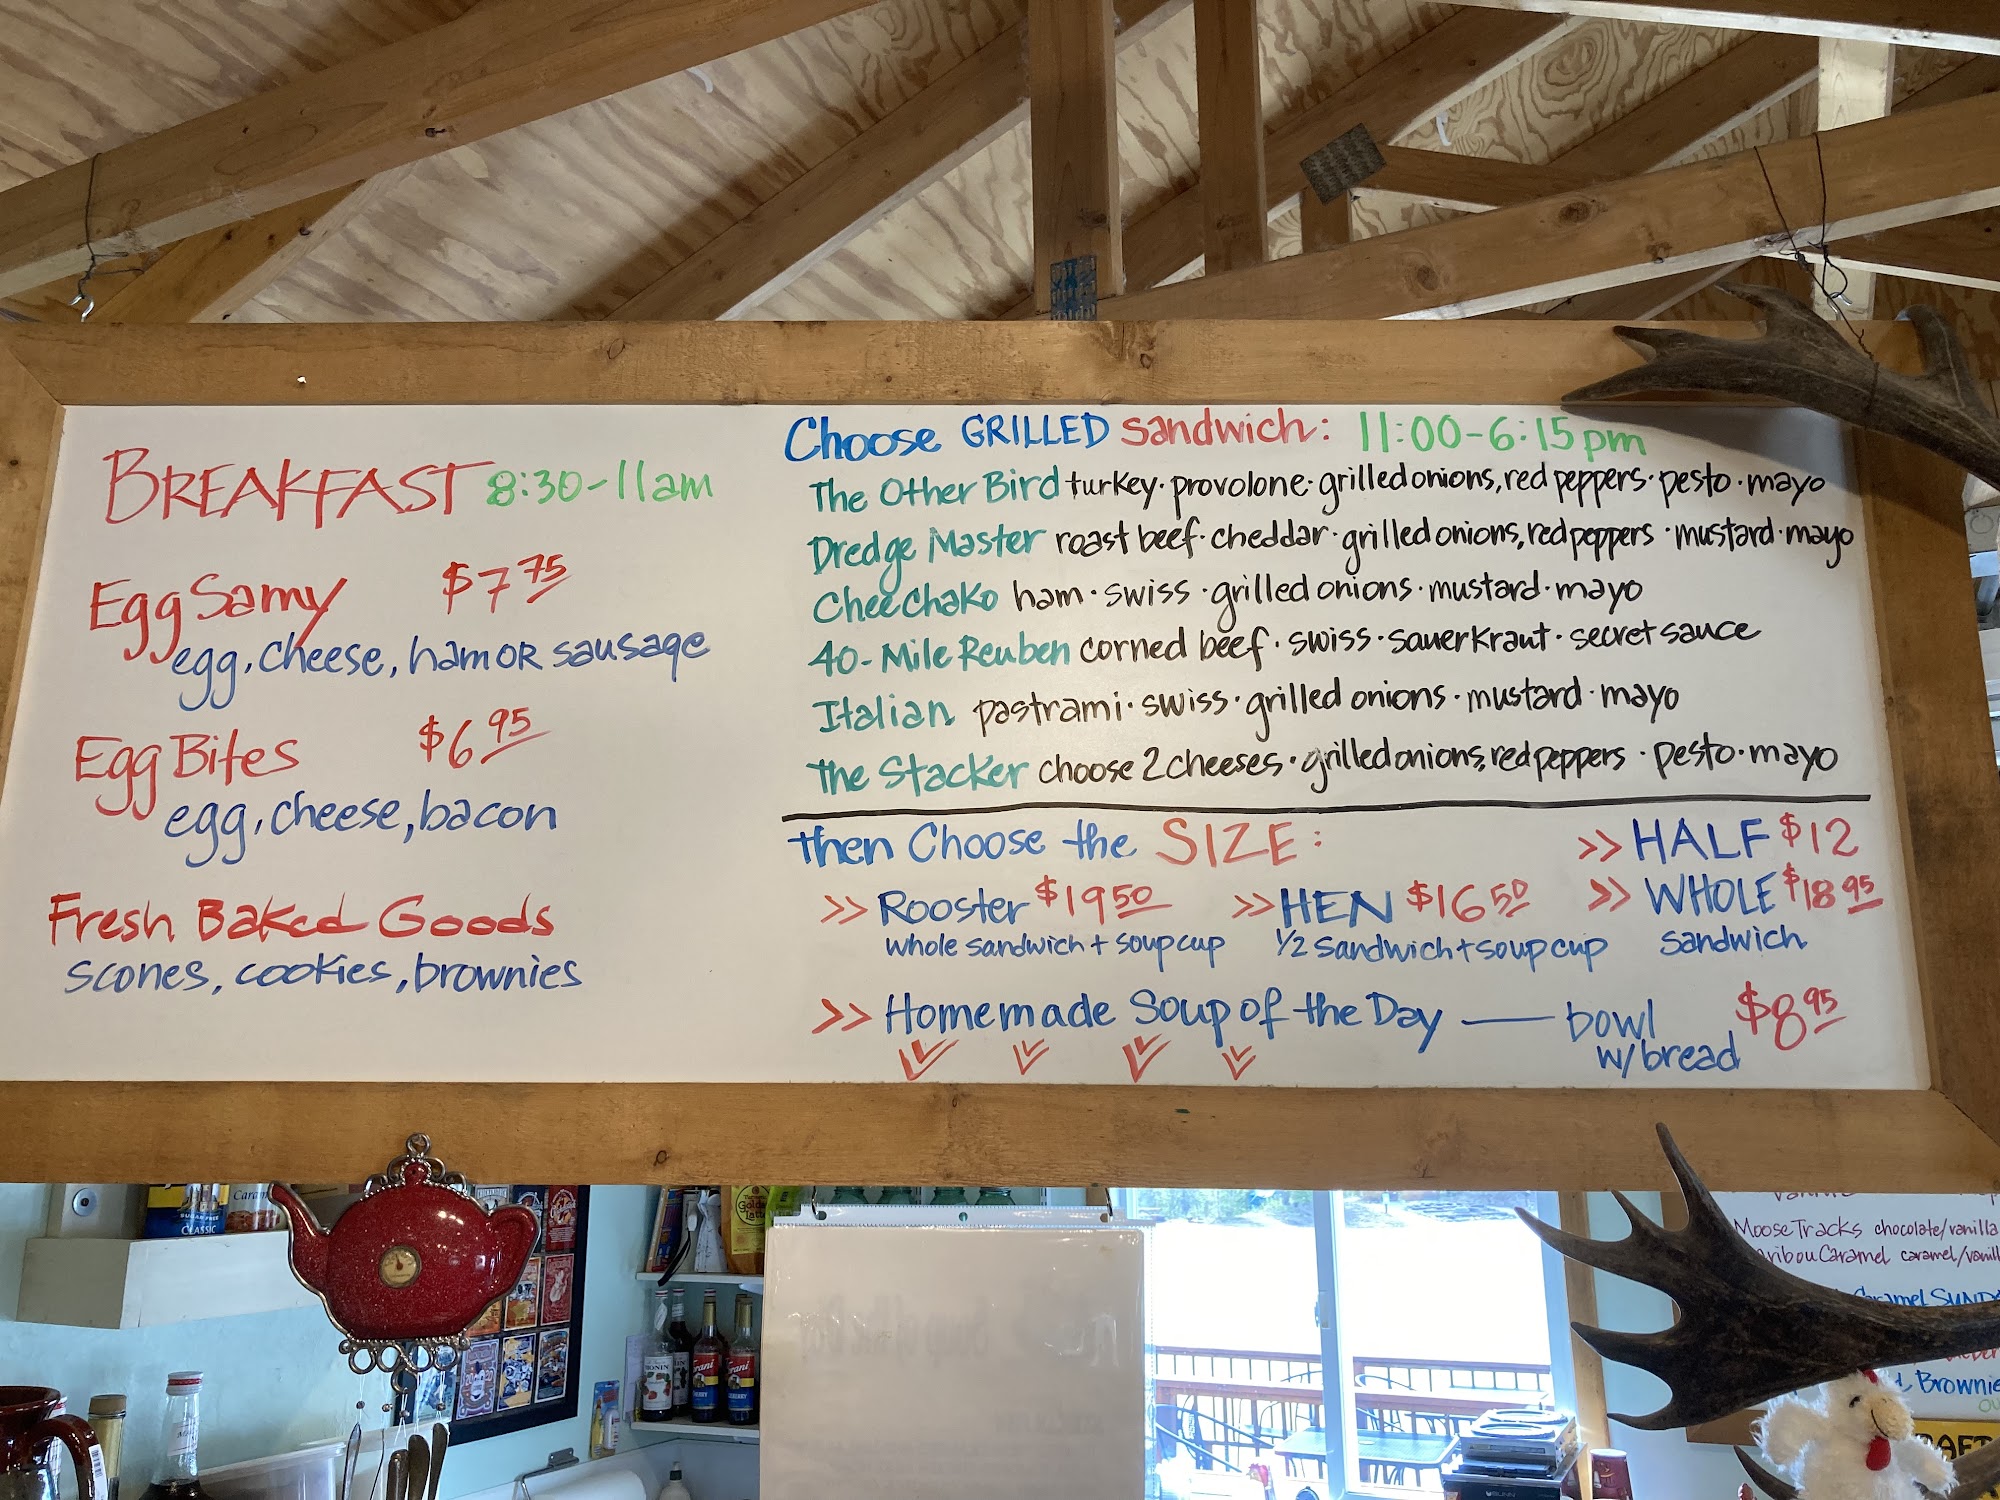 BREAKFAST 8:30-11am
Egg Samy $7.75
egg, cheese, ham OR sausage
Egg Bites $6.95
egg, cheese, bacon
Fresh Baked Goods
scones, cookies, brownies
Choose GRILLED Sandwich: 11:00-6:15pm
The Other Bird turkey · provolone · grilled onions, red peppers · pesto · mayo
Dredge Master roast beef · cheddar · grilled onions, red peppers · mustard · mayo
CheeChaKo ham · swiss · grilled onions · mustard · mayo
40-Mile Reuben corned beef · swiss · sauerkraut · secret sauce
Italian pastrami · swiss · grilled onions · mustard · mayo
the Stacker choose 2 cheeses · grilled onions, red peppers · pesto · mayo
then Choose the SIZE: >> HALF $12
>> Rooster $19.50 >> HEN $16.50 >> WHOLE $18.95
whole sandwich + soup cup 1/2 sandwich + soup cup sandwich
>> Homemade Soup of the Day — bowl $8.95
w/bread
CLASSIC
Moose Tracks chocolate/vanilla
Caramel caramel/